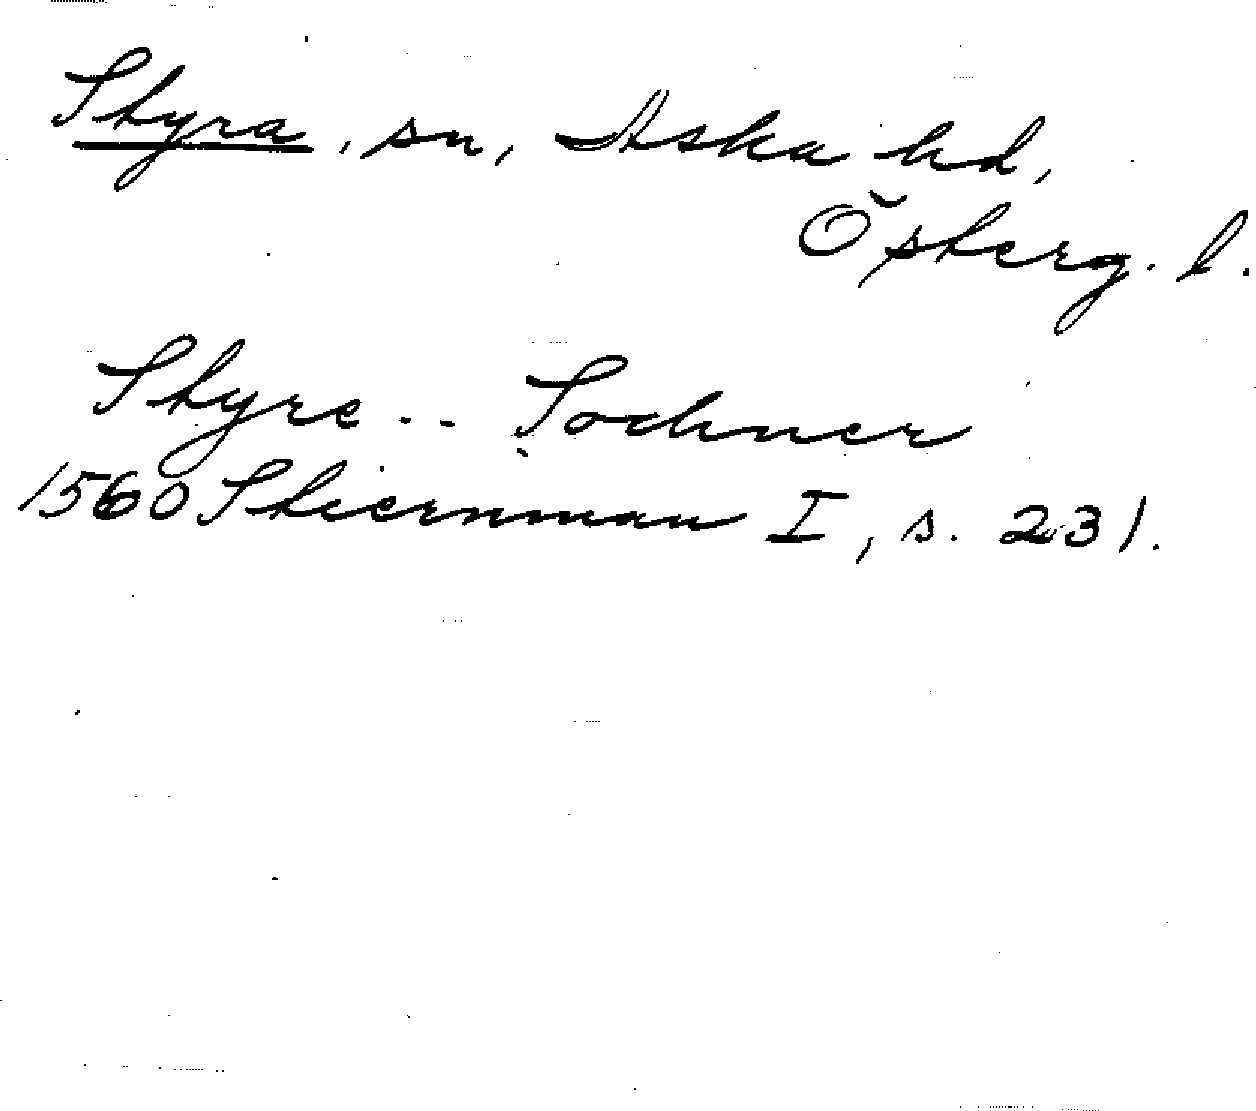 Styra, sn, Aska hd,
Österg. l.
Styre -- Sochner
1560 Stiernman I, s. 231.